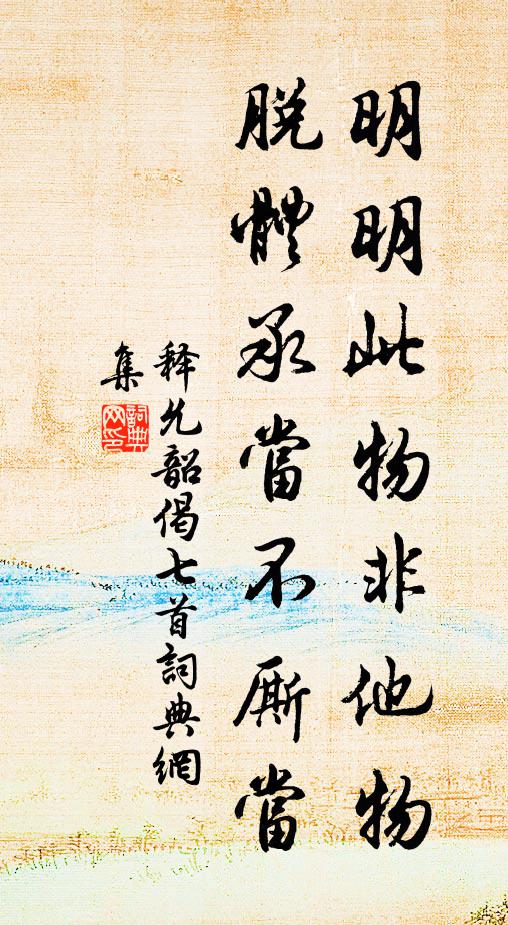 明明此物非他物
脫體承當不厮當
釋允韶偈七首詞典網
集
詞典
网印